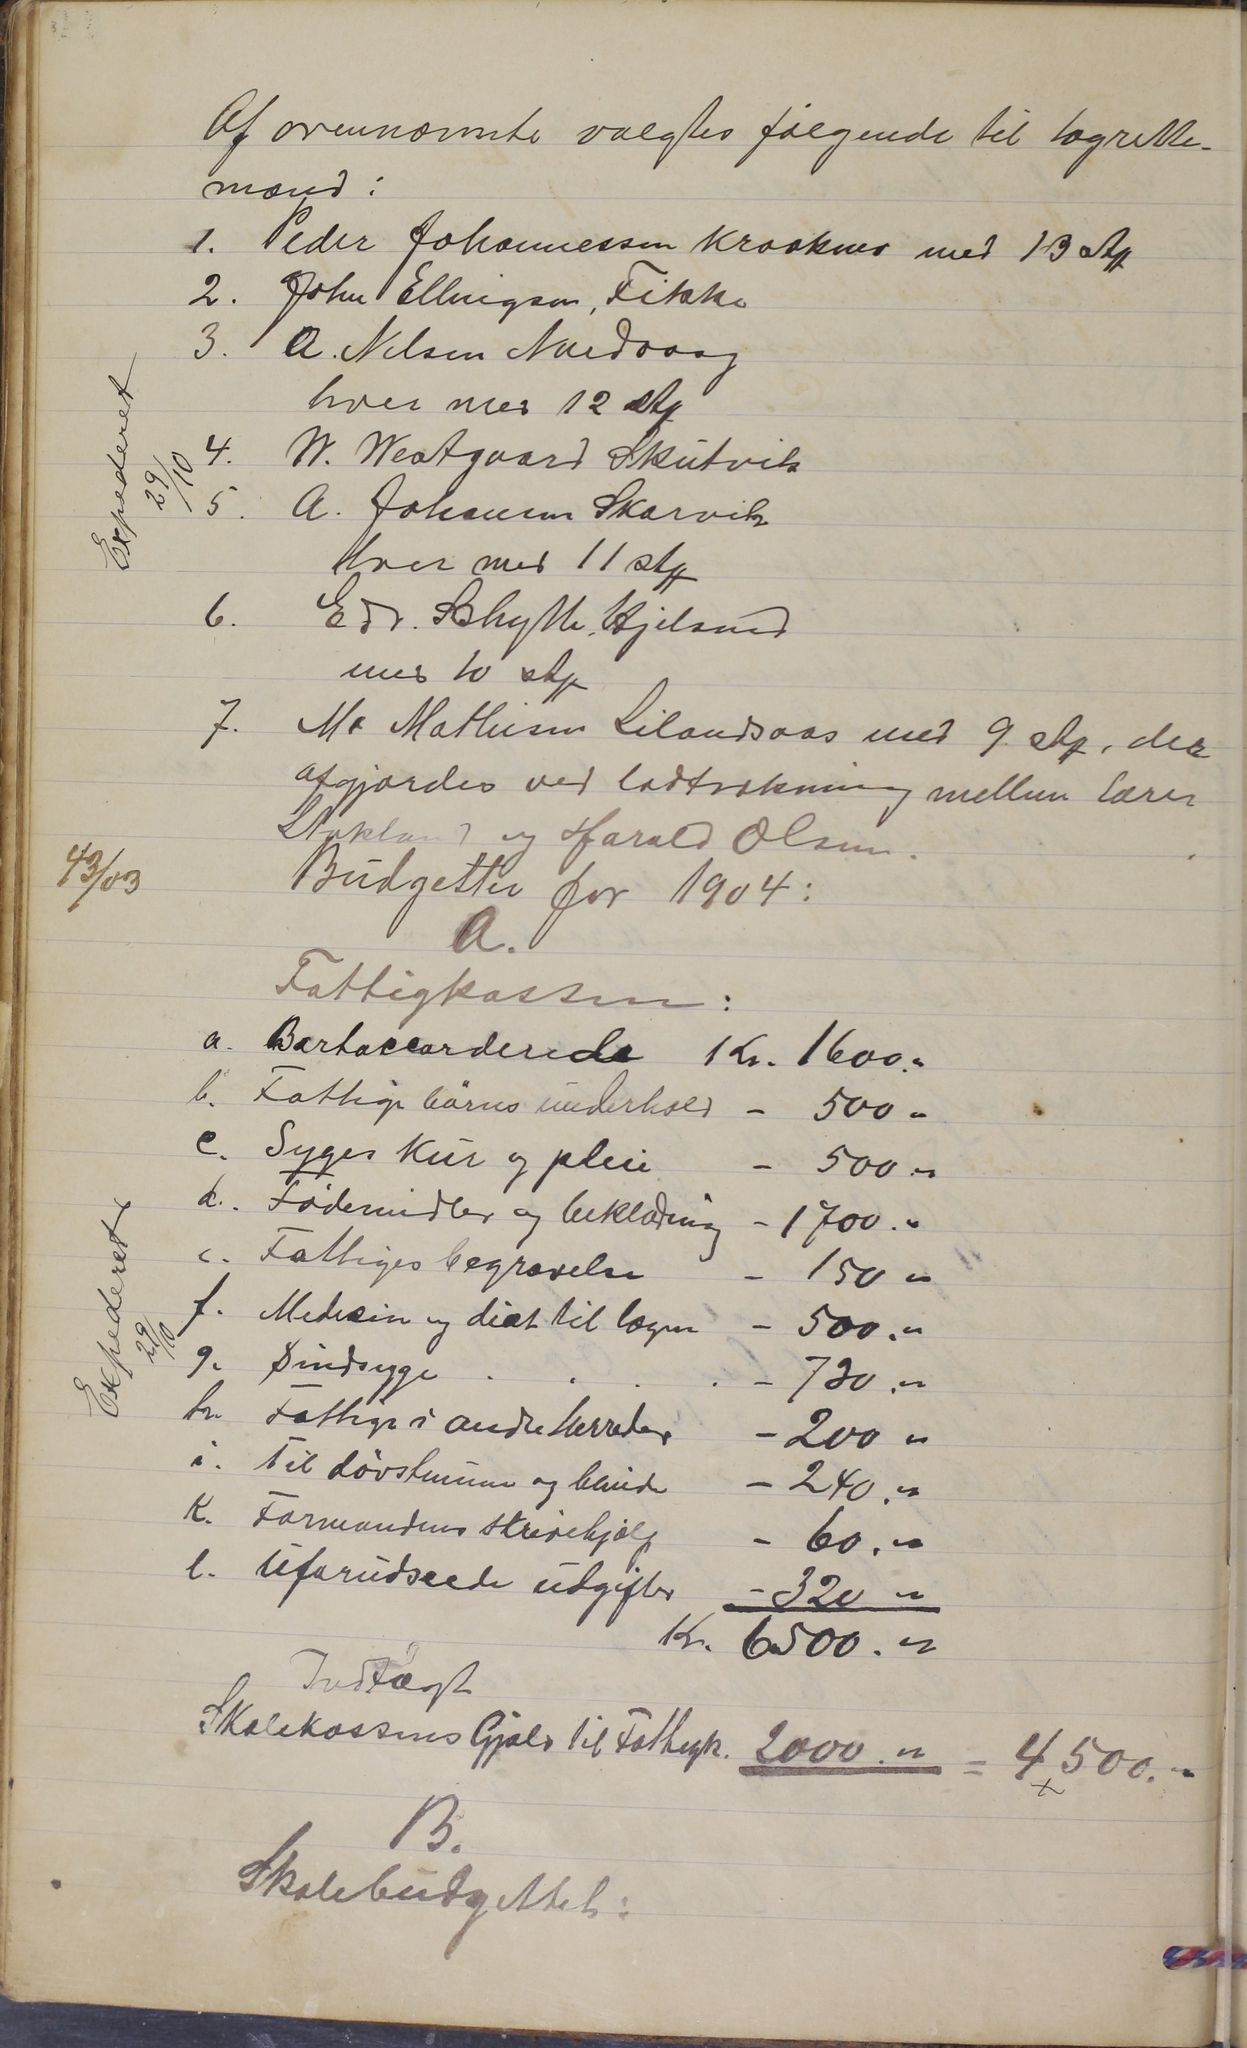 Af ovennævnte valgtes følgende til lagrette-
mænd:
1. Peder Johannessen Kraakmo med 13 st
2. John Ellingsen, Fikke
3. A. Nilsen Nordvaag
hver med 12 st
4. W. Westgaard Skutvik
5. A. Johansen Skarvik
hver med 11 st
6. Edv. Schytte, Hjelsund
med 10 st
7. Mathisen Lilandsaas med 9 st, der
afgjordes ved lodtrækning mellem lærer
Stokland og Harald Olsen.
Expederet
29/10
43/03
Budgetter for 1904:
A.
Fattigkassen:
a. Bortaccorderede Kr. 1600.„
b. Fattige børns underhold - 500 „
c. Syges kur og pleie - 500 „
d. Fødemidler og beklædning - 1700.„
e. Fattiges begravelse - 150 „
f. Medicin og diæt til lægen - 500.„
g. Sindsyge . . . . - 730.„
h. Fattige i andre herreder - 200 „
i. Til døvstumme og blinde - 240.„
k. Formandens skrivehjælp - 60.„
l. Uforudseede udgifter - 320 „
Kr. 6500.„
Expederet
29/10
Indtægt
Skolekassens Gjæld til Fattigk. 2000.„ = 4500.„
B.
Skolebudgettet: